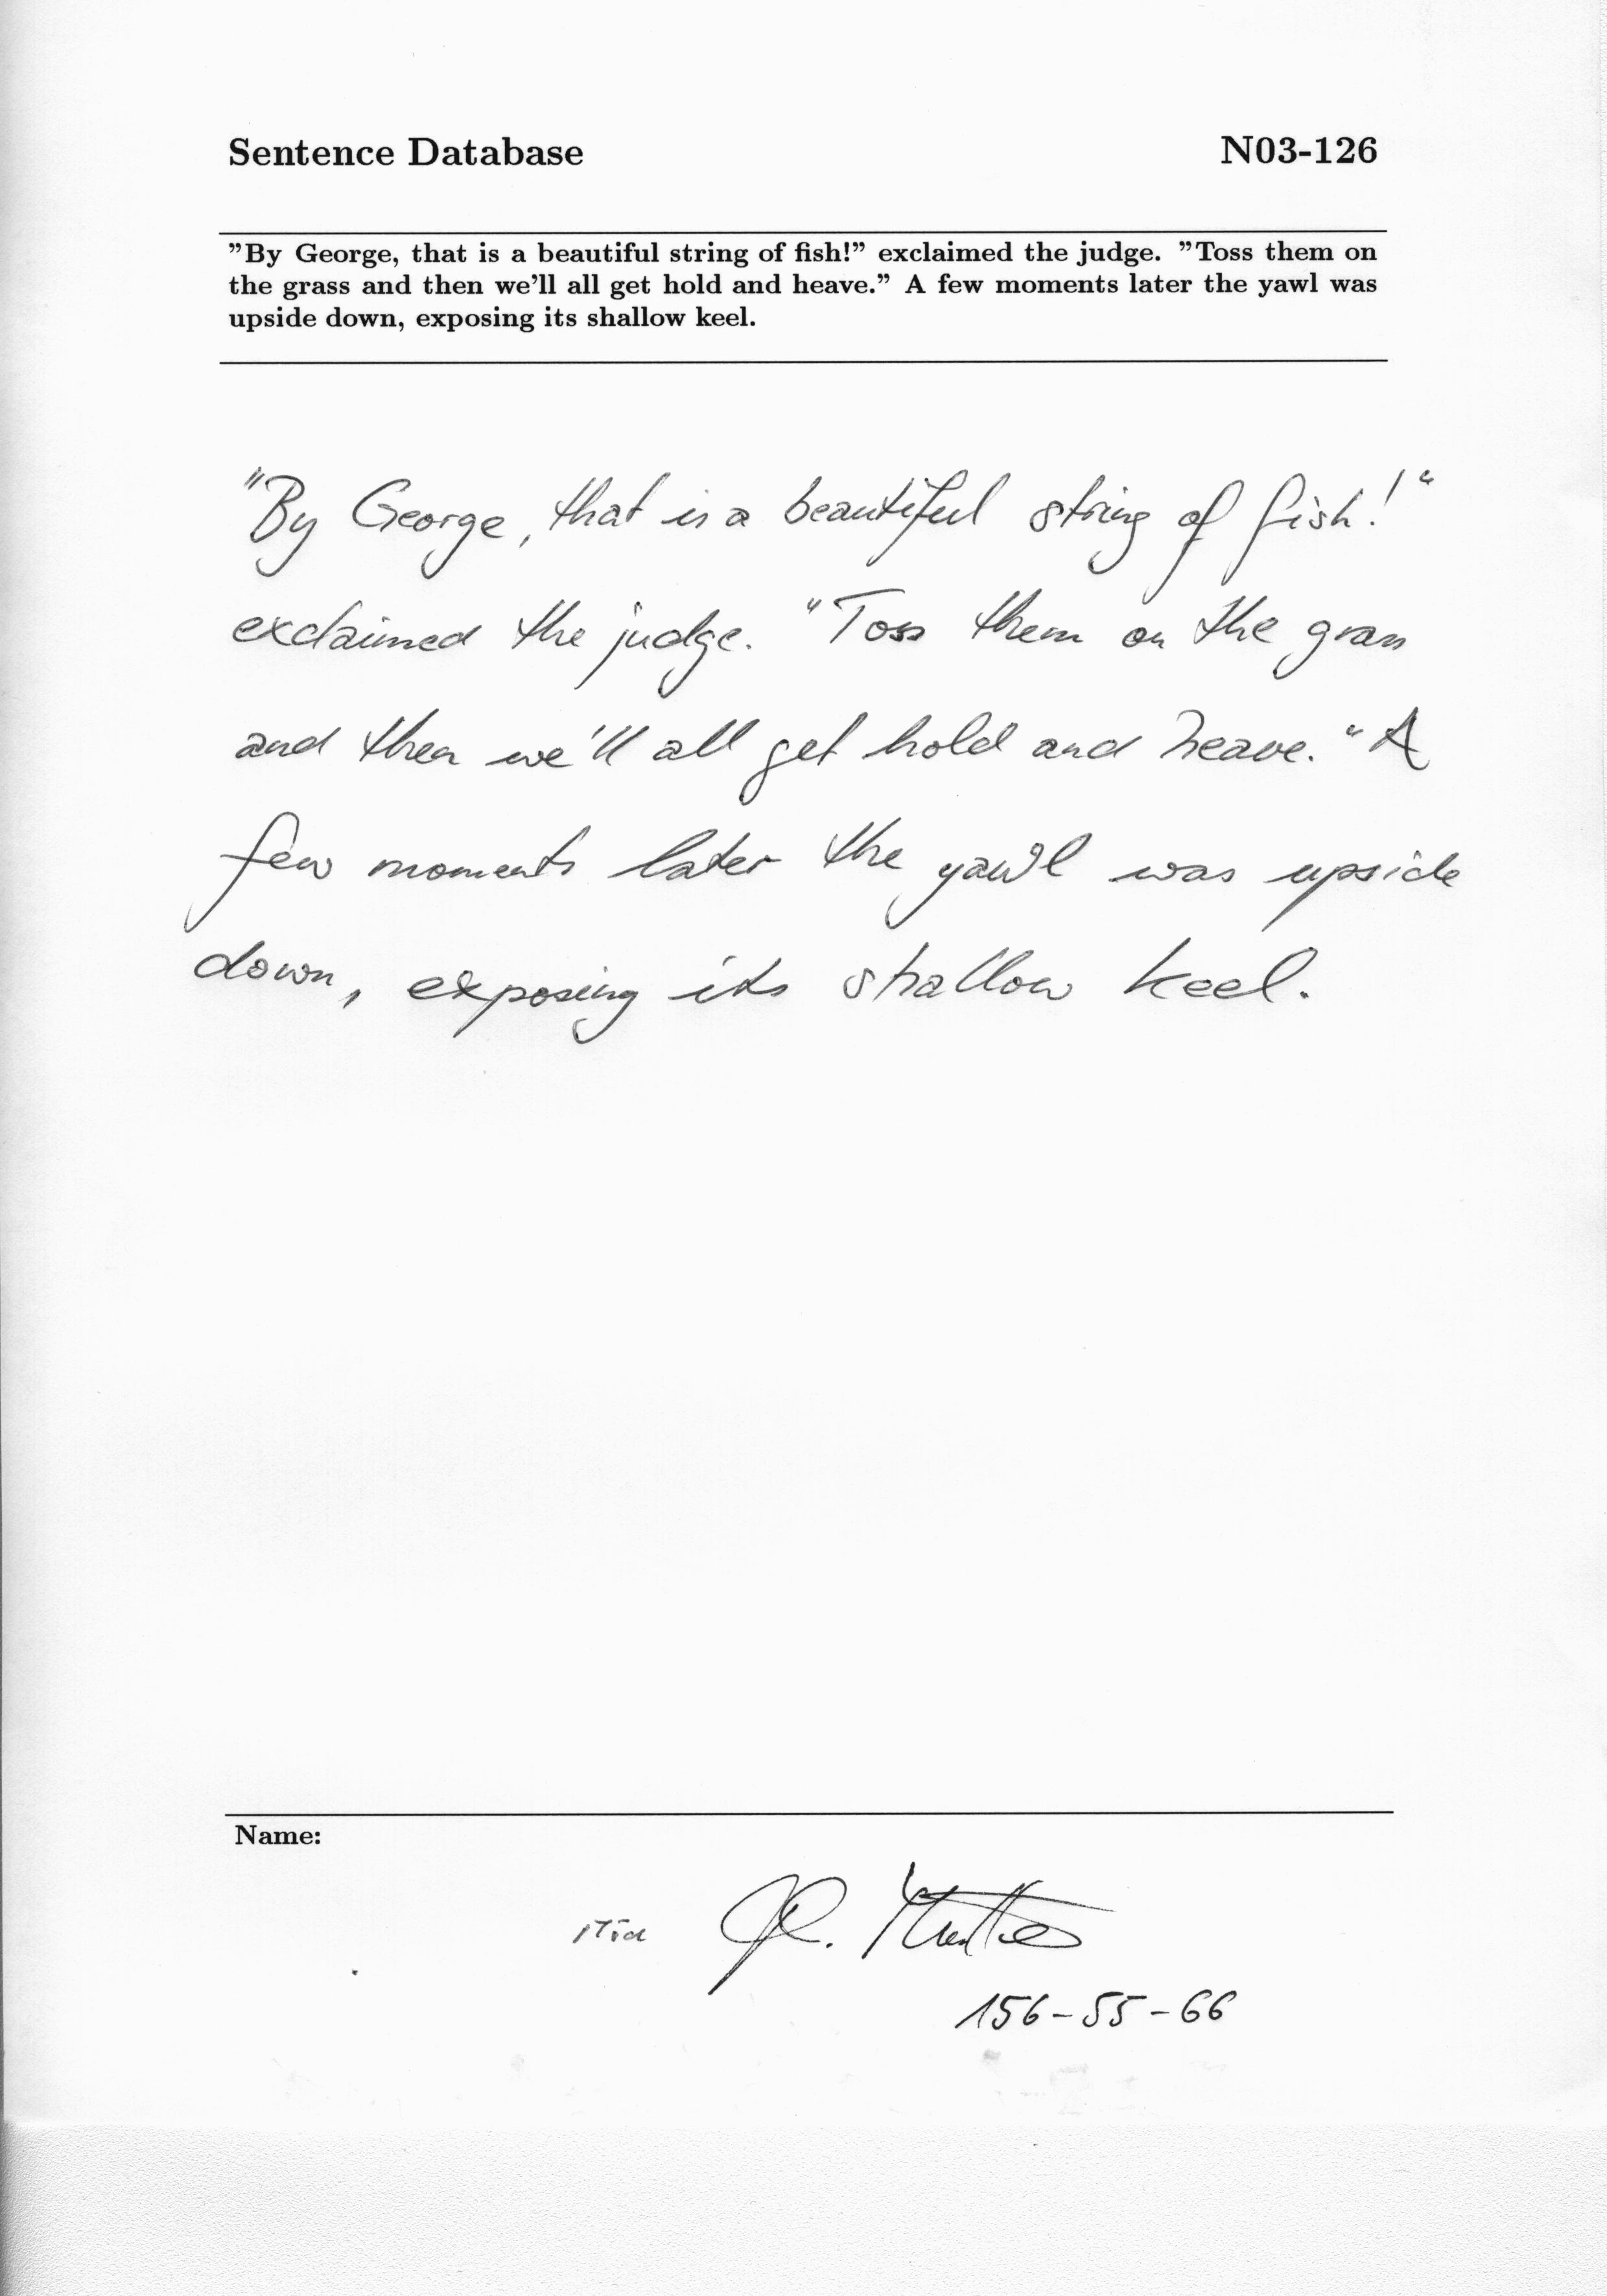 Sentence Database N03-126
"By George, that is a beautiful string of fish!" exclaimed the judge. "Toss them on
the grass and then we'll all get hold and heave." A few moments later the yawl was
upside down, exposing its shallow keel.
"By George, that is a beautiful string of fish!"
exclaimed the judge. "Toss them on the grass
and then we'll all get hold and heave." A
few moments later the yawl was upside
down, exposing its shallow keel.
Name:
156-55-66